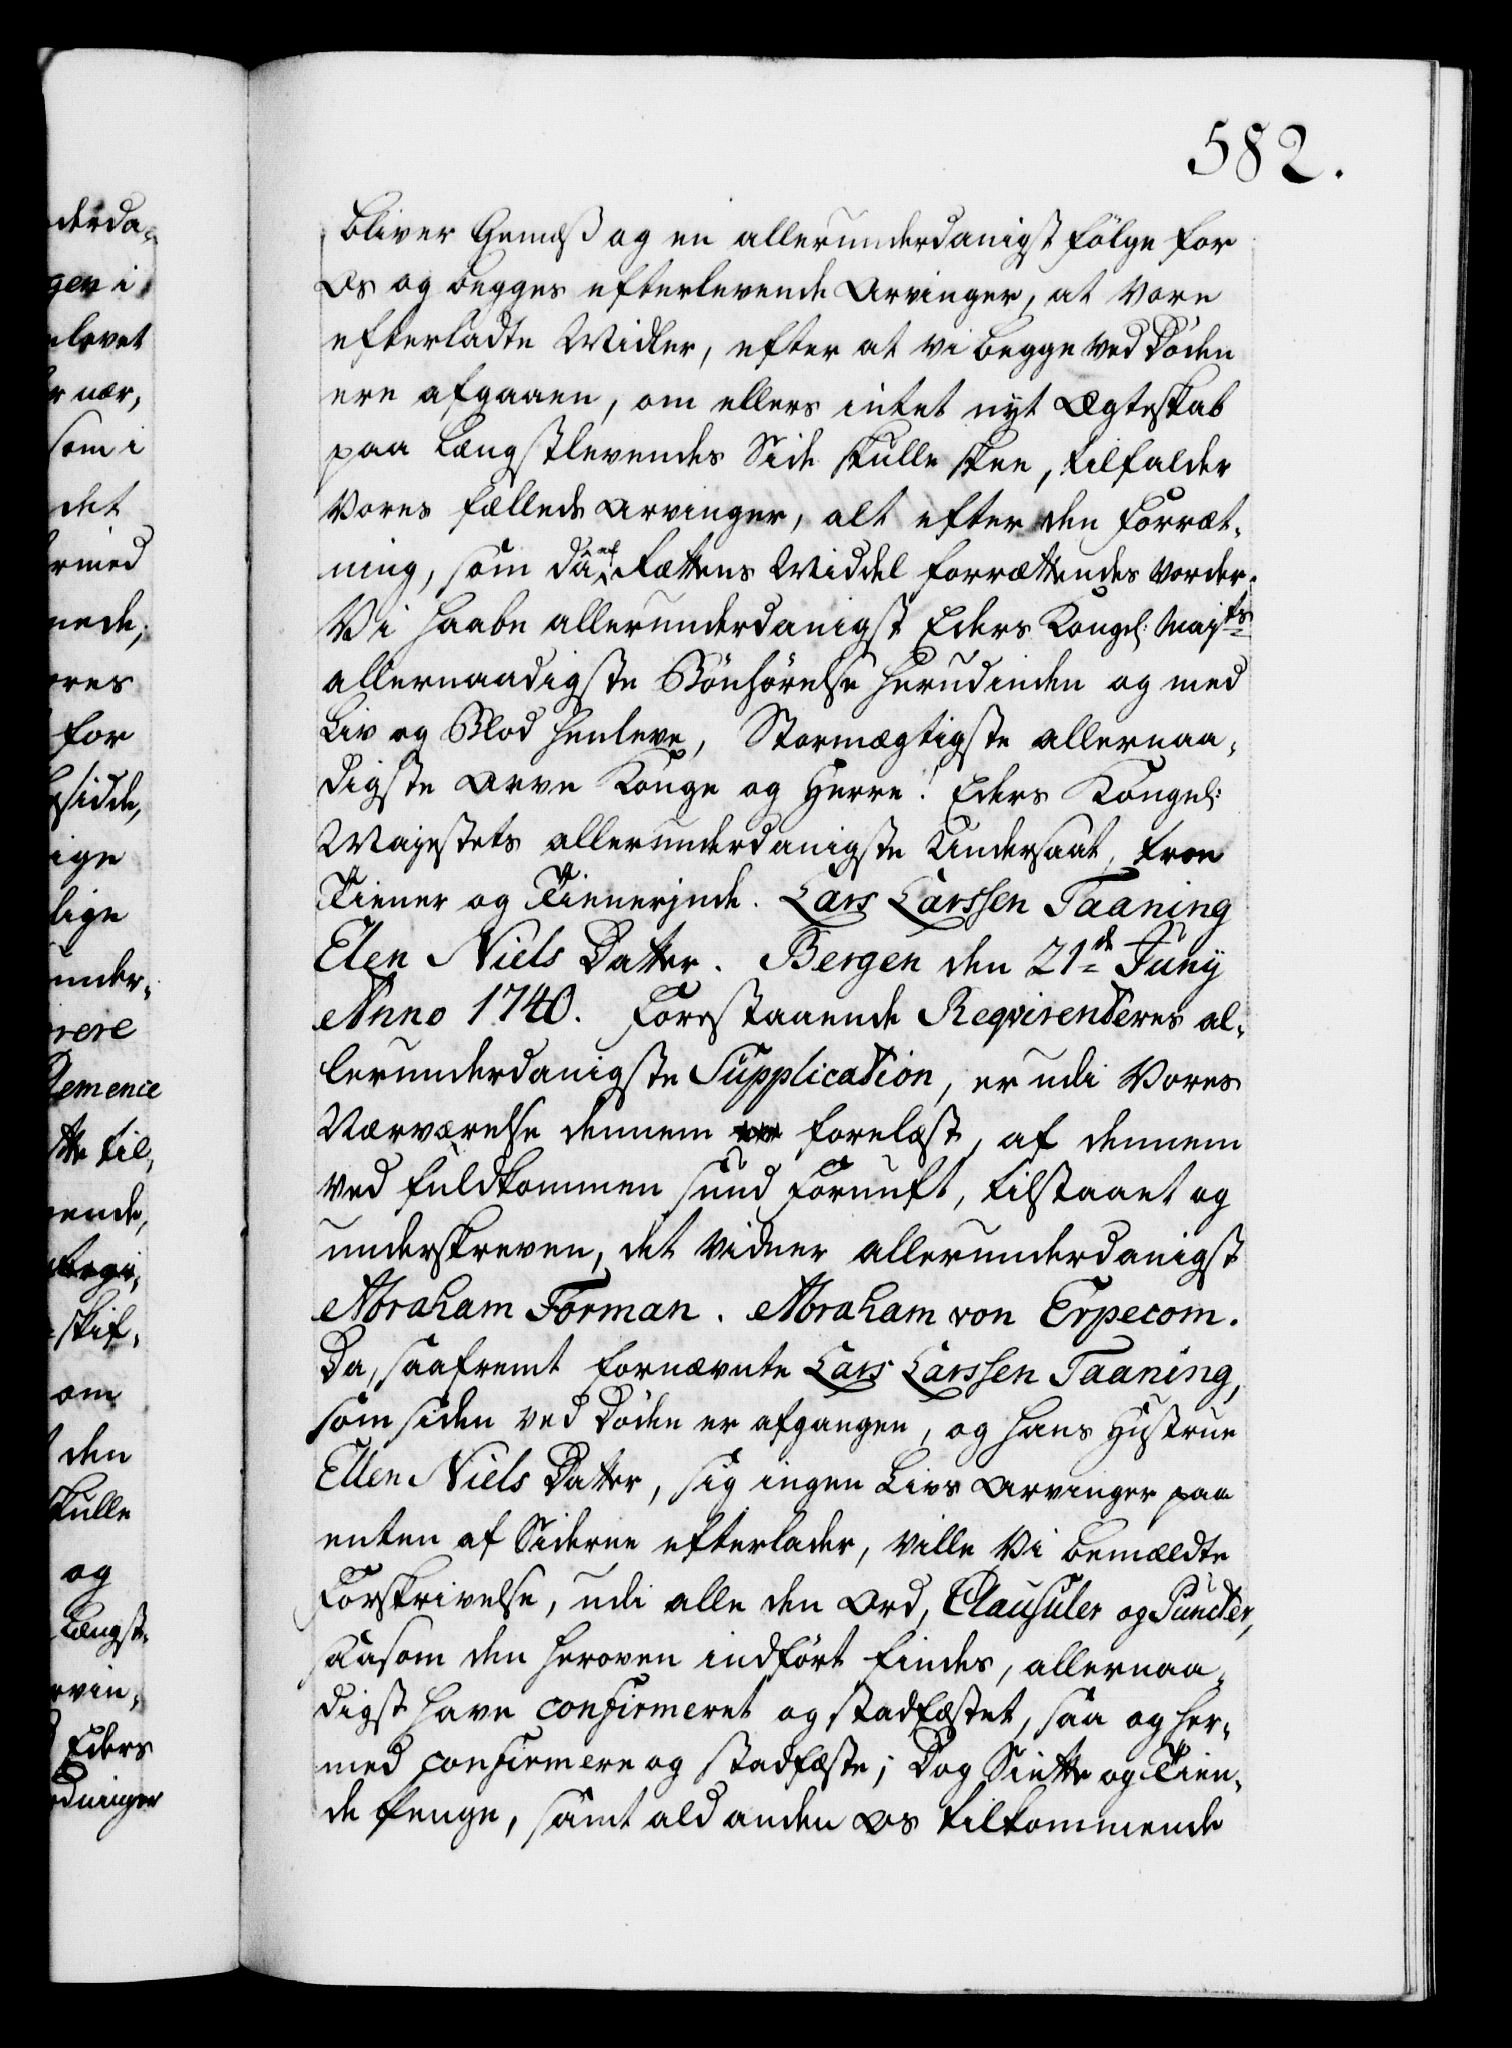 582.
bliver Gemæs og en allerunderdanigst følge for
Os og begges efterlevende Arvinger, at vore
efterladte Midler, efter at vi begge ved Döden
ere afgaaen, om ellers intet nyt Ægteskab
paa Længstlevendes Side skulle skee, tilfalder
vores fælleds Arvinger, alt efter den Forræt-
ning, som da af Rættens Middel forrættendes vorder.
Vi haabe allerunderdanigst Eders Kongel: Mayts
allernaadigste Bönhörelse herudinden og med
Liv og Blod henleve, Stormægtigste allernaa-
digste Arve Konge og Herre! Eders Kongel:
Majestets allerunderdanigste Undersaat, troe
Tiener og Tienerinde. Lars Larssen Taaning
Elen Niels Datter. Bergen den 21de Juny
Anno 1740. Forestaaende Reqvirenteres al-
lerunderdanigste Supplication, er udi Vores
Nærværelse dennem forelæst, af dennem
ved fuldkommen sund Fornuft, tilstaaet og
underskreven, det vidner allerunderdanigst
Abraham Forman. Abraham von Erpecom.
Da, saafremt fornævnte Lars Larssen Taaning,
som siden ved Döden er afgangen, og hans Hustrue
Ellen Niels Datter, sig ingen Livs Arvinger paa
enten af Siderne efterlader, ville Vi bemældte
Forskrivelse, udi alle den Ord, Clausuler og Puncter,
saasom den heroven indfört findes, allernaa-
digst have confirmeret og stadfæstet, saa og her-
med confirmere og stadfæste; Dog Siette og Tien-
de Penge, samt ald anden Os tilkommende